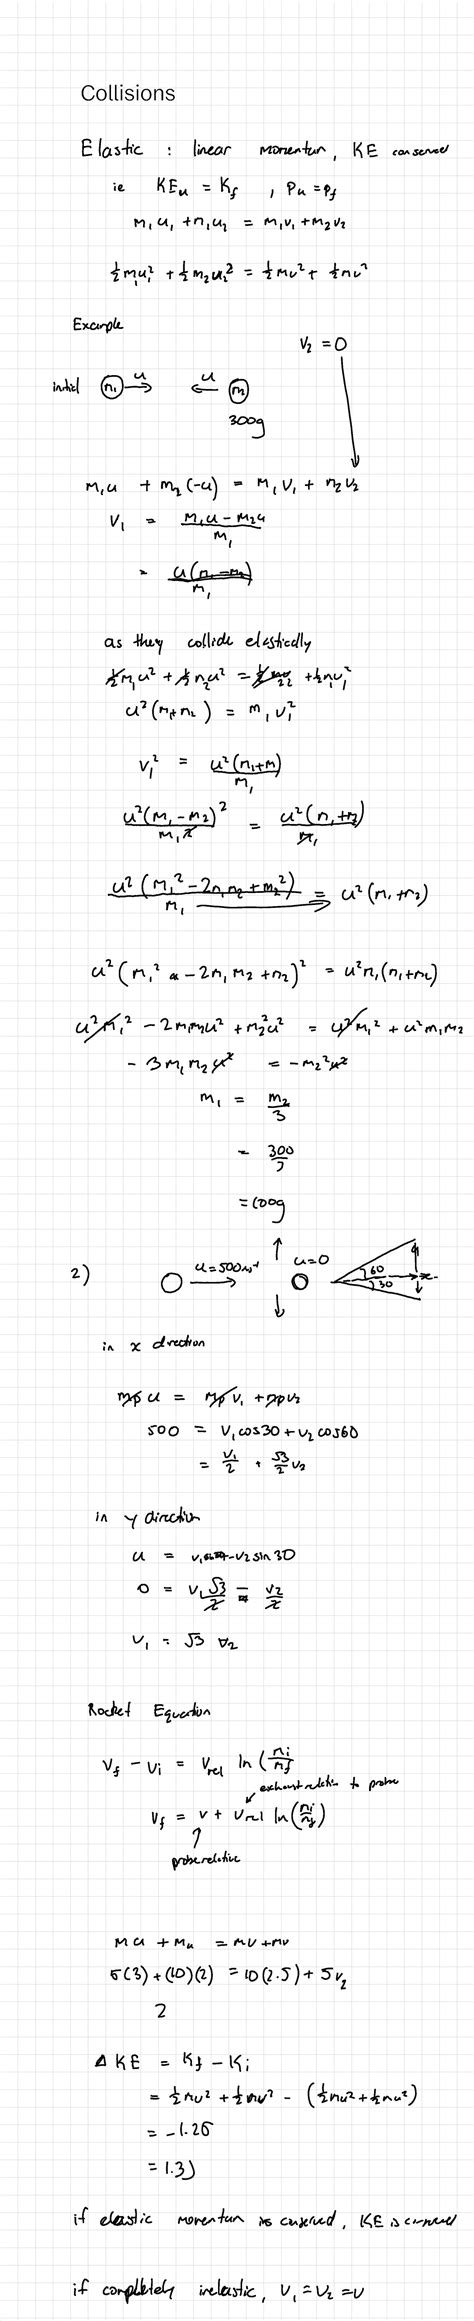 Collisions
Elastic : linear momentum, KE conserved
ie KEu = Kf , Pu = Pf
m₁u₁ + m₁u₂ = m₁v₁ + m₂v₂
½m₁u₁² + ½m₂u₂² = ½mv² + ½mv²
Example
V₂ = 0
initial m₁ u u m₂
300g
m₁u + m₂(-u) = m₁v₁ + m₂v₂
V₁ = (m₁u - m₂u)/m₁
= u(m₁ - m₂)/m₁
as they collide elastically
½m₁u² + ½m₂u² = + ½m₁v₁²
u²(m₁+m₂) = m₁v₁²
v₁² = u²(m₁+m)/m₁
u²(m₁-m₂)²/m₁² = u²(m₁+m₂)/m₁
u²(m₁² - 2m₁m₂ + m₂²)/m₁ = u²(m₁+m₂)
u²(m₁² - 2m₁m₂ + m₂)² = u²m₁(m₁+m₂)
u²m₁² - 2m₁m₂u² + m₂²u² = u²m₁² + u²m₁m₂
- 3m₁m₂u² = -m₂²u²
m₁ = m₂/3
= 300/3
= 100g
2) u=500ms⁻¹ u=0 60 30 x
in x direction
mp u = mp v₁ + mp v₂
500 = v₁cos30 + v₂cos60
= v₁/2 + √3/2 v₂
in y direction
u = - v₂sin30
0 = v₁√3/2 = v₂/2
v₁ = √3 v₂
Rocket Equation
Vf - Vi = Vrel ln(mi/mf
exhaust relative to probe
Vf = v + Vrel ln(mi/mf)
probe relative
mu + mu = mv + mv
5(3) + (10)(2) = 10(2.5) + 5v₂
2
ΔKE = Kf - Ki
= ½mv² + ½mv² - (½mu² + ½mu²)
= -1.25
= 1.3J
if elastic momentum is conserved, KE is conserved
if completely inelastic, v₁ = v₂ = v